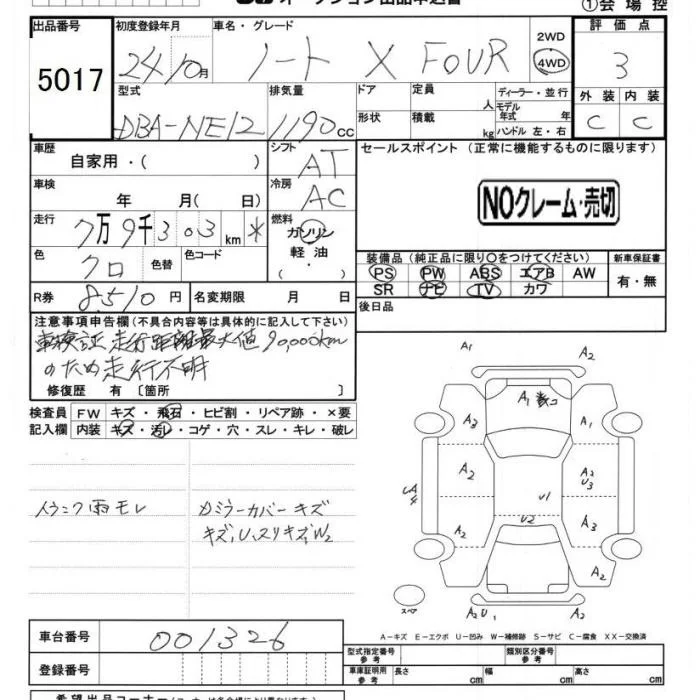 ①会場控
出品番号 初度登録年月 車名・グレード 2WD 評価点
5017 24/10月 ノート X FOUR 4WD 3
型式 排気量 ドア 定員 人 ディーラー・並行 外装 内装
モデル年式 年
DBA-NE12 1190cc 形状 積載 kg ハンドル 左・右 C C
車歴 シフト セールスポイント (正常に機能するものに限ります)
自家用・( ) AT
車検 冷房
年 月( 日) AC NOクレーム・売切
走行 燃料
7万9千303km * ガソリン
色 色替 色コード 軽油 装備品 (純正品に限り○をつけてください) 新車保証書
クロ ・( ) PS PW ABS エアB AW 有・無
R券 8510円 名変期限 月 日 SR ナビ TV カワ
後日品
注意事項申告欄(不具合内容等は具体的に記入して下さい)
車検証走行距離最大値90,000km
のため走行不明
修復歴 有 〔箇所 〕
検査員 FW キズ・飛石・ヒビ割・リペア跡・×要
記入欄 内装 キズ・汚レ・コゲ・穴・スレ・キレ・破レ
トランク雨モレ
ミラーカバーキズ
A1 A2
A1
A3
A2 A2
U3
U1
U2 A3
A2
A2
A2 U1
スペア
A-キズ E-エクボ U-凹み W-補修跡 S-サビ C-腐食 XX-交換済
車台番号 001326
登録番号
型式指定番号 参考 類別区分番号 参考
車庫証明用 参考 長さ cm 幅 cm 高さ cm